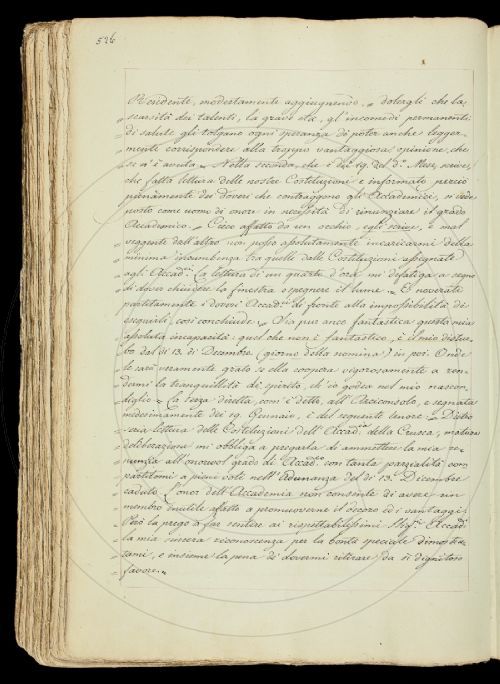 526
Residente, modestamente aggiugnendo „ dolergli che la
„ scarsità dei talenti, la grave età, gl'incomodi permanenti
„ di salute gli tolgano ogni speranza di poter anche legger-
„ mente corrispondere alla troppo vantaggiosa opinione, che
se n'è avuta „ Nella seconda, che è de' 19. del d.º Mese, scrive,
che fatta lettura delle nostre Costituzioni e informato perciò
pienamente dei doveri che contraggono gli Accademici, si vede
posto come uomo di onore in necessità di rinunziare il grado
Accademico. „ Cieco affatto da un occhio, egli scrive, e mal
„ veggente dall'altro non posso assolutamente incaricarmi della
„ minima incumbenza tra quelle dalle Costituzioni assegnate
„ agli Accad.ci La lettura di un quarto d'ora mi defatiga a segno
„ di dover chiudere la finestra o spegnere il lume. „ E noverate
partitamente i doveri Accad.ci di fronte alla impossibilità di
eseguirli, così conchiude. „ Sia pur anco fantastica questa mia
„ assoluta incapacità: quel che non è fantastico, è il mio distur-
„ bo dal dì 13. di Decembre (giorno della nomina) in poi. Onde
„ le sarò veramente grato se ella coopera vigorosamente a ren-
„ dermi la tranquillità di spirito, ch'io godea nel mio nascon-
„ diglio „ La terza diretta, com'è detto, all'Arciconsolo, e segnata
medesimamente dei 19. Gennaio, è del seguente tenore. „ Dietro
„ seria lettura delle Costituzioni dell'Accad.ia della Crusca, matura
„ deliberazione mi obbliga a pregarla di ammettere la mia re-
„ nunzia all'onorevol grado di Accad.co con tanta parzialità com-
„ partitomi a pieni voti nell'Adunanza del dì 13. Decembre
„ caduto. L'onor dell'Accademia non consente di avere un
„ membro inutile affatto a promuoverne il decoro ed i vantaggi.
„ Però la prego a far sentire ai rispettabilissimi Sig.ri Accad.ci
„ la mia sincera riconoscenza per la bontà speciale dimostra-
„ tami, e insieme la pena di dovermi ritirare da sì dignitoso
„ favore. „